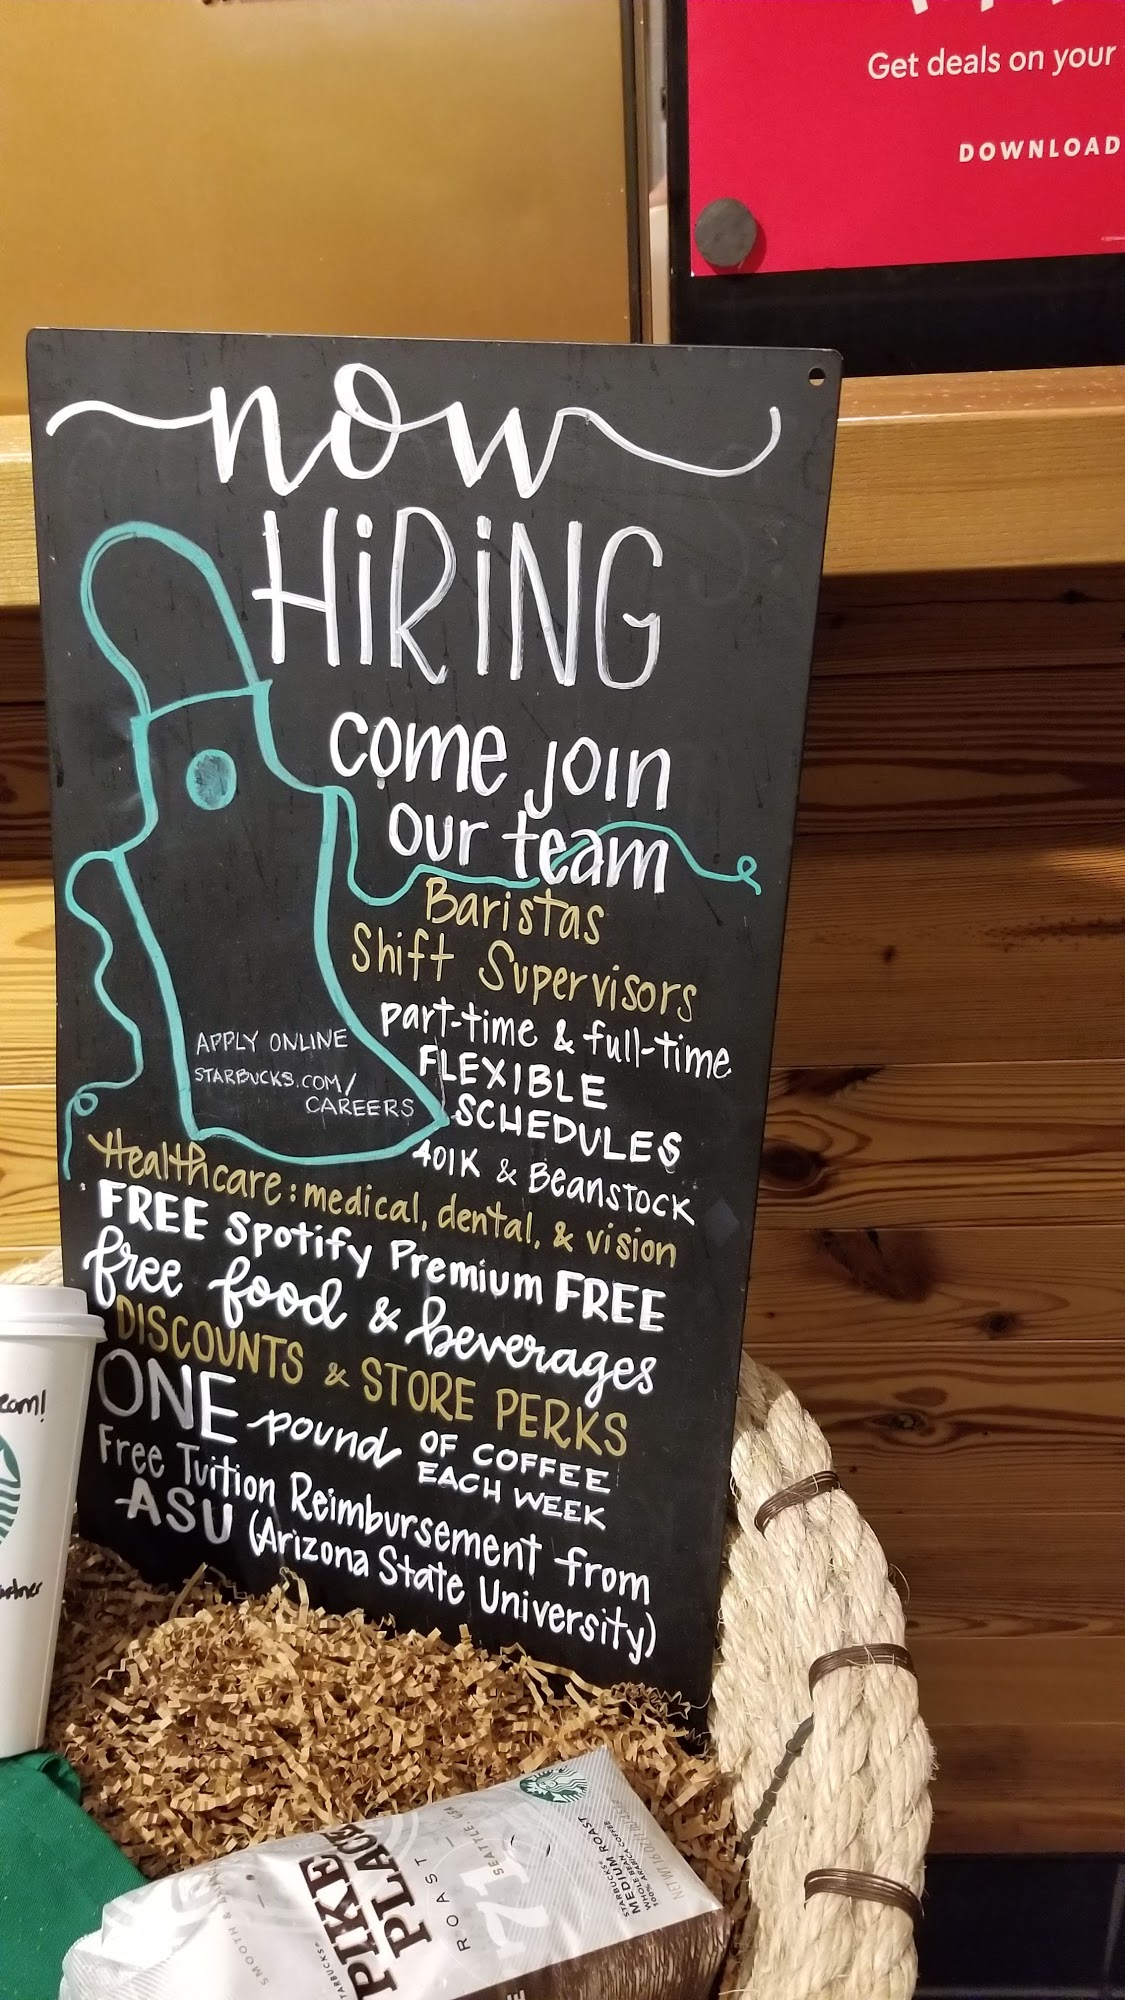 Get deals on your
DOWNLOAD
now
HiRiNG
come join
our team
Baristas
Shift Supervisors
part-time & full-time
FLEXIBLE
SCHEDULES
401K & Beanstock
APPLY ONLINE
STARBUCKS.COM/
CAREERS
Healthcare: medical, dental, & vision
FREE Spotify Premium FREE
free food & beverages
DISCOUNTS & STORE PERKS
ONE pound OF COFFEE
EACH WEEK
Free Tuition Reimbursement from
ASU (Arizona State University)
PIKE
PLACE
ROAST
SEATTLE, USA
STARBUCKS®
MEDIUM ROAST
WHOLE BEAN COFFEE
100% ARABICA
SMOOTH &